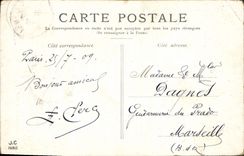 CARTE POSTALE
La Correspondance au recto n'est pas acceptée par tous les pays étrangers
Se renseigner à la Poste
Côté correspondance
Côté adresse
Paris 21/7-09
Bonjour amical
Madame et Mlle
Dagnos
Gendarmerie du Prado
Marseille
J.C